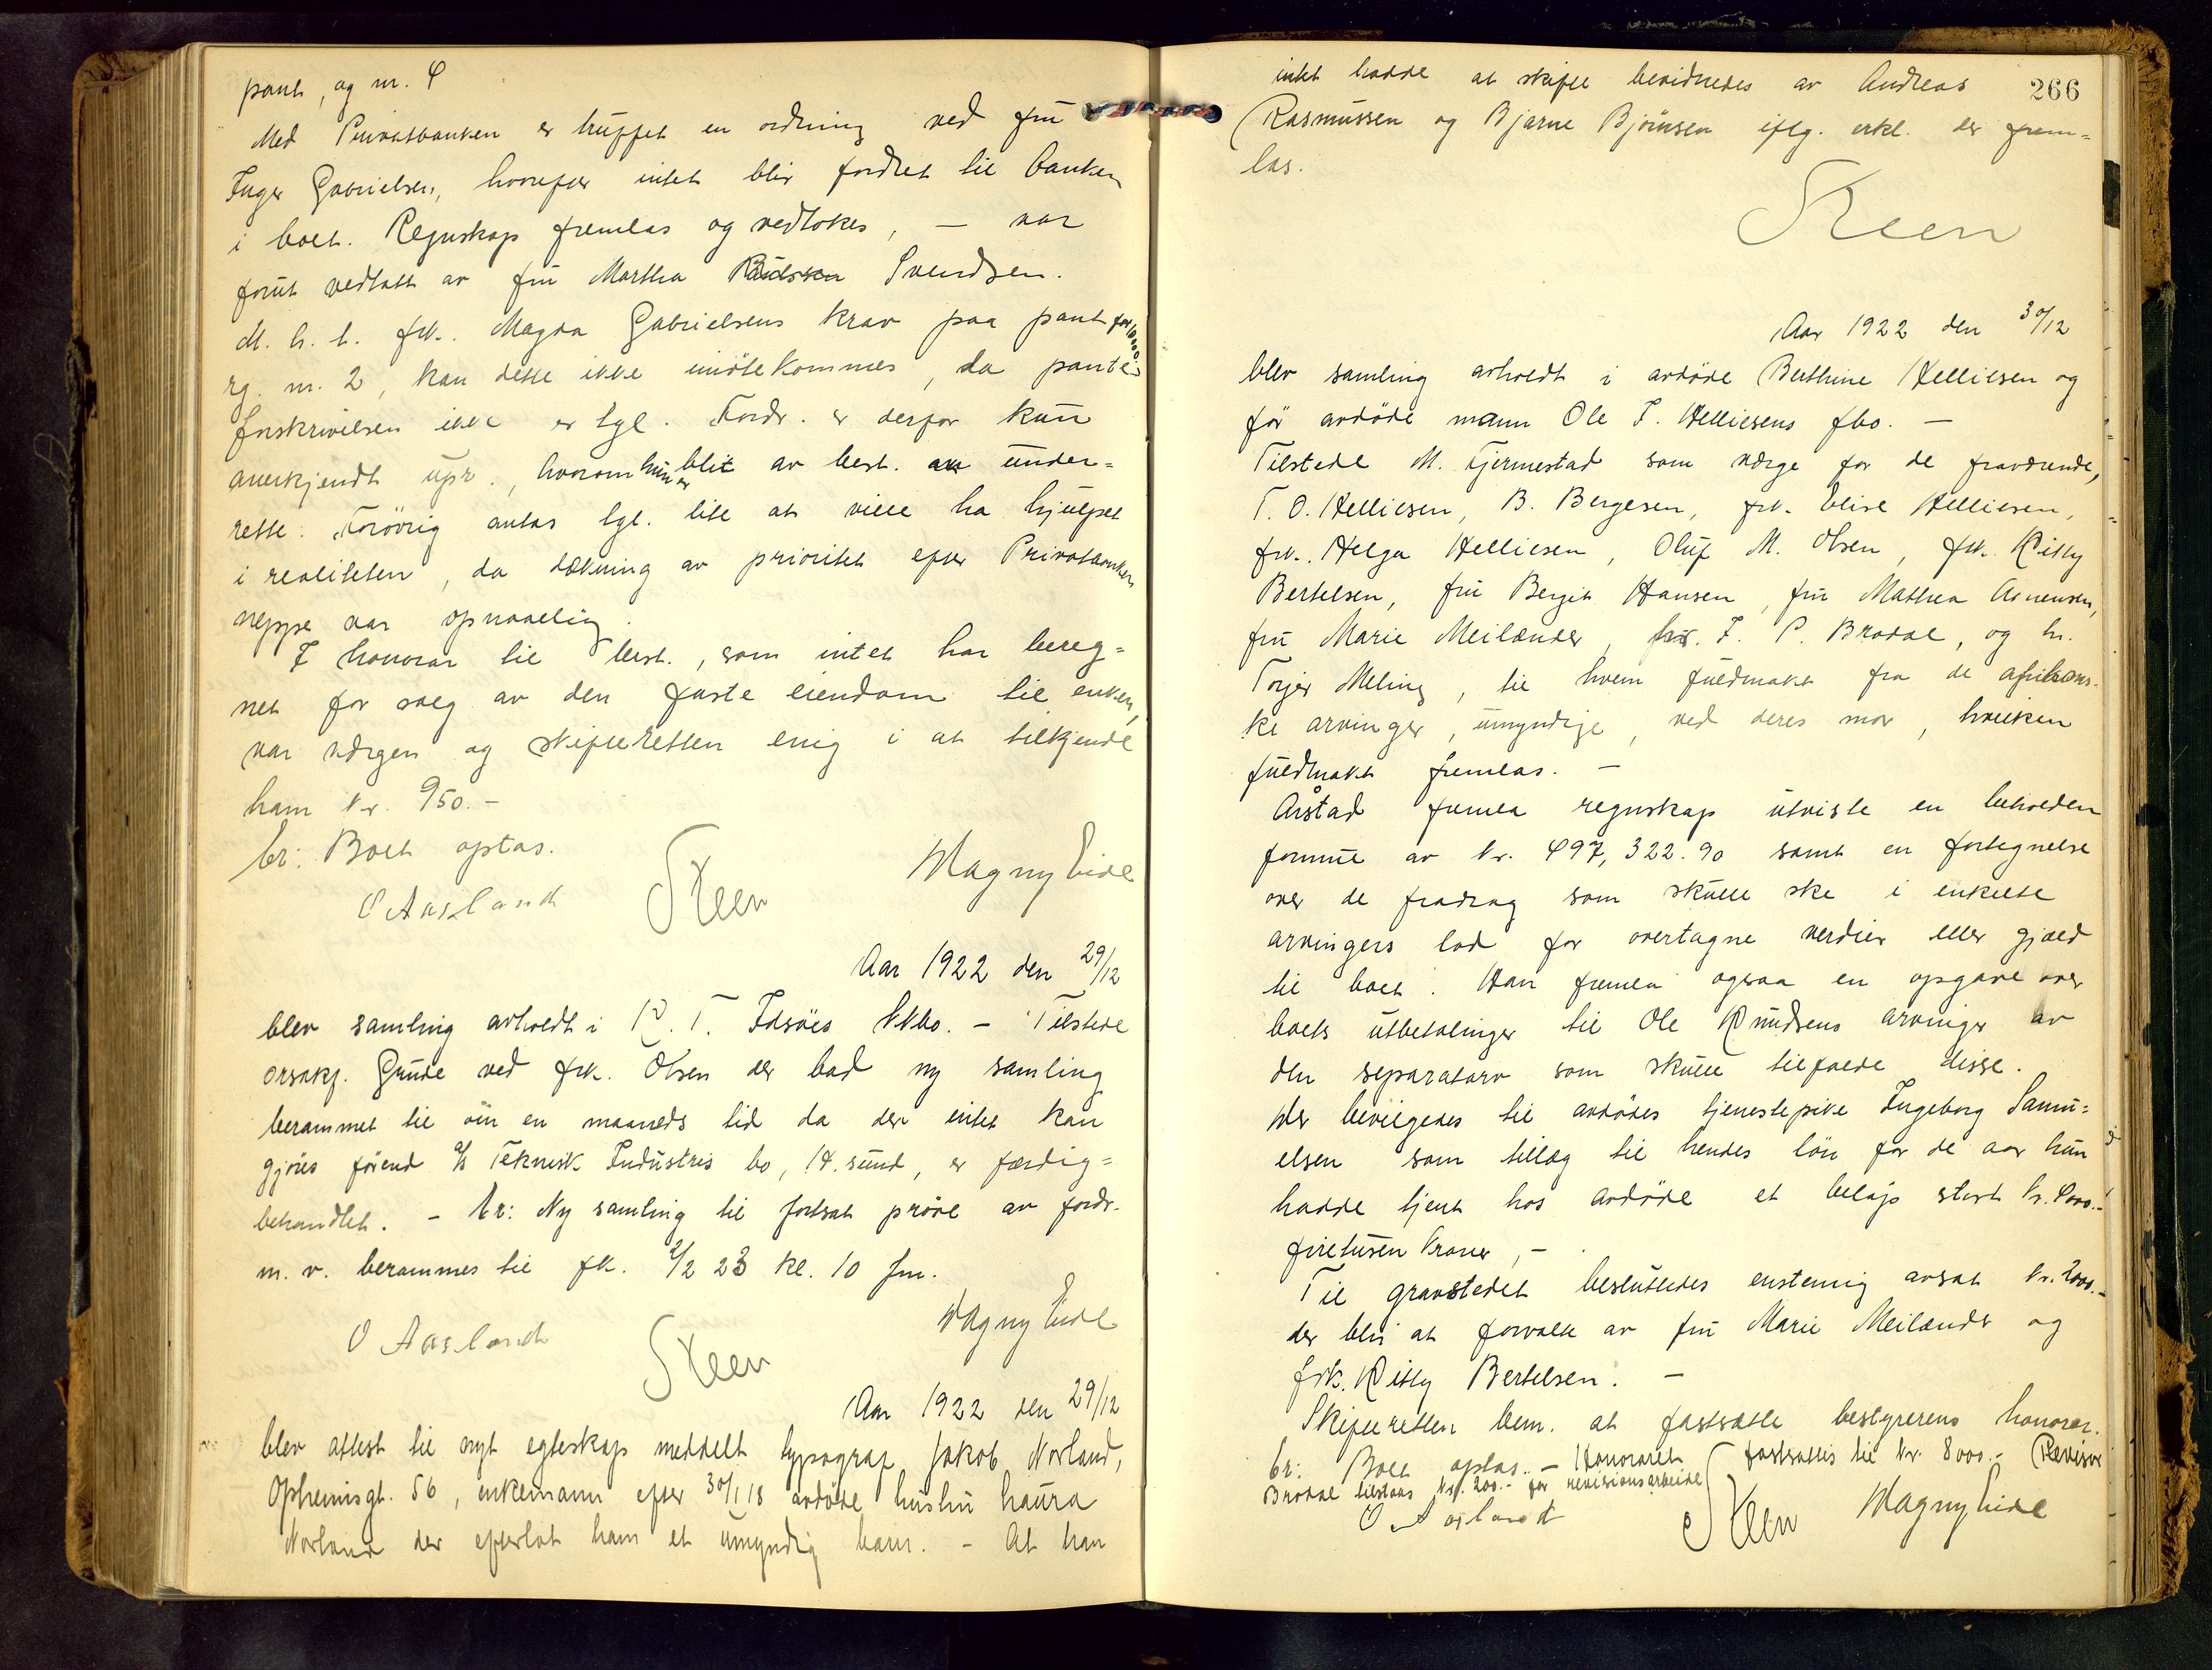 pant, og nr. 4
Med Privatbanken er truffet en ordning ved fru
Inger Gabrielsen, hvorefter intet blir fordret til banken
i boet. Regnskap fremlas og vedtokes, — var
forut vedtatt av fru Martha Svendsen.
M. h. t. frk. Magda Gabrielsens krav paa pant for 10000.
rg. nr. 2, kan dette ikke imötekommes, da pante-
forskrivelsen ikke er tgl. Fordr. er derfor kun
anerkjendt upr., hvorom hun er blit av best. under=
rette. Forövrig antas tgl. lite at ville ha hjulpet
i realiteten, da dækning av prioritet efter Privatbanken
neppe var opnaaelig.
I honorar til best., som intet har bereg=
net for salg av den faste eiendom til enken,
var værgen og skifteretten enig i at tilkjende
ham kr. 950.-
br: Boet optas.
O Aasland Steen Magny Eide
Aar 1922 den 29/12
blev samling avholdt i R. T. Idsöes kkbo. - Tilstede
orsakf. Grude ved frk. Olsen der bad ny samling
berammet til om en maaneds tid da der intet kan
gjöres förend A/S Teknisk Industris bo, H.sund, er færdig=
behandlet. - br: Ny samling til fortsat pröve av fordr.
m. v. berammes til fk. 2/2 23 kl. 10 fm.
O Aasland Steen Magny Eide
Aar 1922 den 29/12
blev attest til nyt egteskap meddelt typograf Jakob Norland,
Opheimsgt. 56, enkemann efter 30/1 18 avdöde hustru Laura
Norland der efterlot ham et umyndig barn. - At han
266
intet hadde at skifte bevidnedes av Andreas
Rasmussen og Bjarne Björnsen iflg. erkl. der frem=
las.
Steen
Aar 1922 den 30/12
blev samling avholdt i avdöde Berthine Helliesen og
för avdöde mann Ole T. Helliesens fbo. —
Tilstede M. Tjermestad som værge for de fraværende,
T. O. Helliesen, B. Bergesen, frk. Elise Helliesen,
frk. Helga Helliesen, Oluf M. Olsen, frk. Kitty
Bertelsen, fru Bergit Hansen, fru Mathea Arnensen,
fru Marie Meilænder, F. P. Brodal, og hr.
Torjer Meling, til hvem fuldmakt fra de afrikans-
ke arvinger, umyndige, ved deres mor, hvilken
fuldmakt fremlas. —
Årstad fremla regnskap utviste en beholden
formue av kr. 497,322.90 samt en fortegnelse
over de fradrag som skulle ske i enkelte
arvingers lod for overtagne verdier eller gjæld
til boet. Han fremla ogsaa en opgave over
boets utbetalinger til Ole Knudsens arvinger av
den separatarv som skulle tilfalde disse.
Der bevilgedes til avdödes tjenestepike Ingeborg Samu=
elsen som tillæg til hendes lön for de aar hun
hadde tjent hos avdöde et belöp stort kr. 4000.-
firetusen kroner, -
Til gravstedet besluttedes enstemig avsat kr. 2000.-
der blir at forvalte av fru Marie Meilænder og
frk. Kitty Bertelsen. —
Skifteretten bem. at fastsætte bestyrerens honorar.
br: Boet optas. - Honoraret fastsattes til kr. 8000.- (Revisor
Brodal tilstaas kr. 200.- for revisionsarbeide)
O Aasland Steen Magny Eide